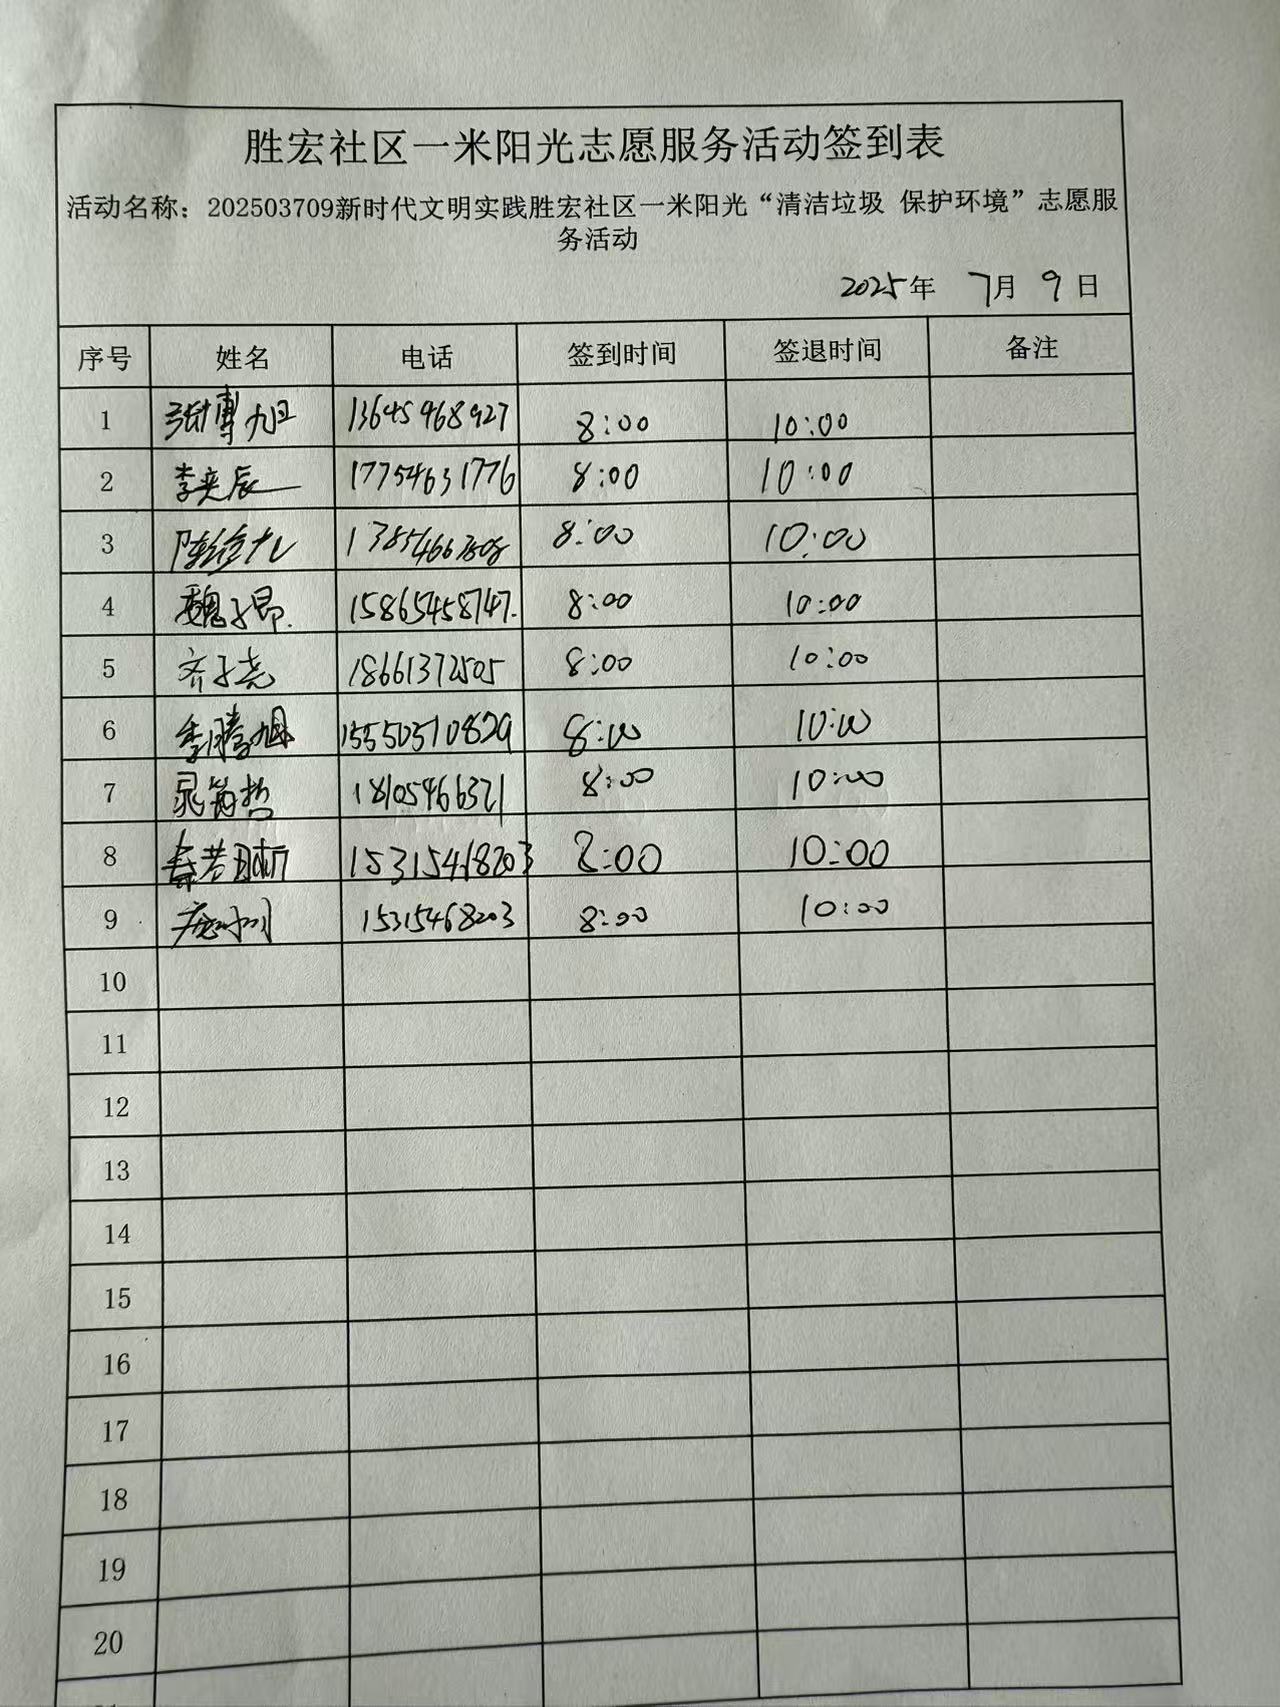 胜宏社区一米阳光志愿服务活动签到表
活动名称：202503709新时代文明实践胜宏社区一米阳光“清洁垃圾 保护环境”志愿服
务活动
2025年 7月 9日
序号 姓名 电话 签到时间 签退时间 备注
1 张博旭 13645468927 8:00 10:00
2 李奕辰 17754631776 8:00 10:00
3 8:00 10:00
4 魏子昂. 15865458747. 8:00 10:00
5 齐子尧 18661372505 8:00 10:00
6 李腾旭 15550510829 8:00 10:00
7 18105466321 8:00 10:00
8 15315468203 8:00 10:00
9 15315468203 8:00 10:00
10
11
12
13
14
15
16
17
18
19
20